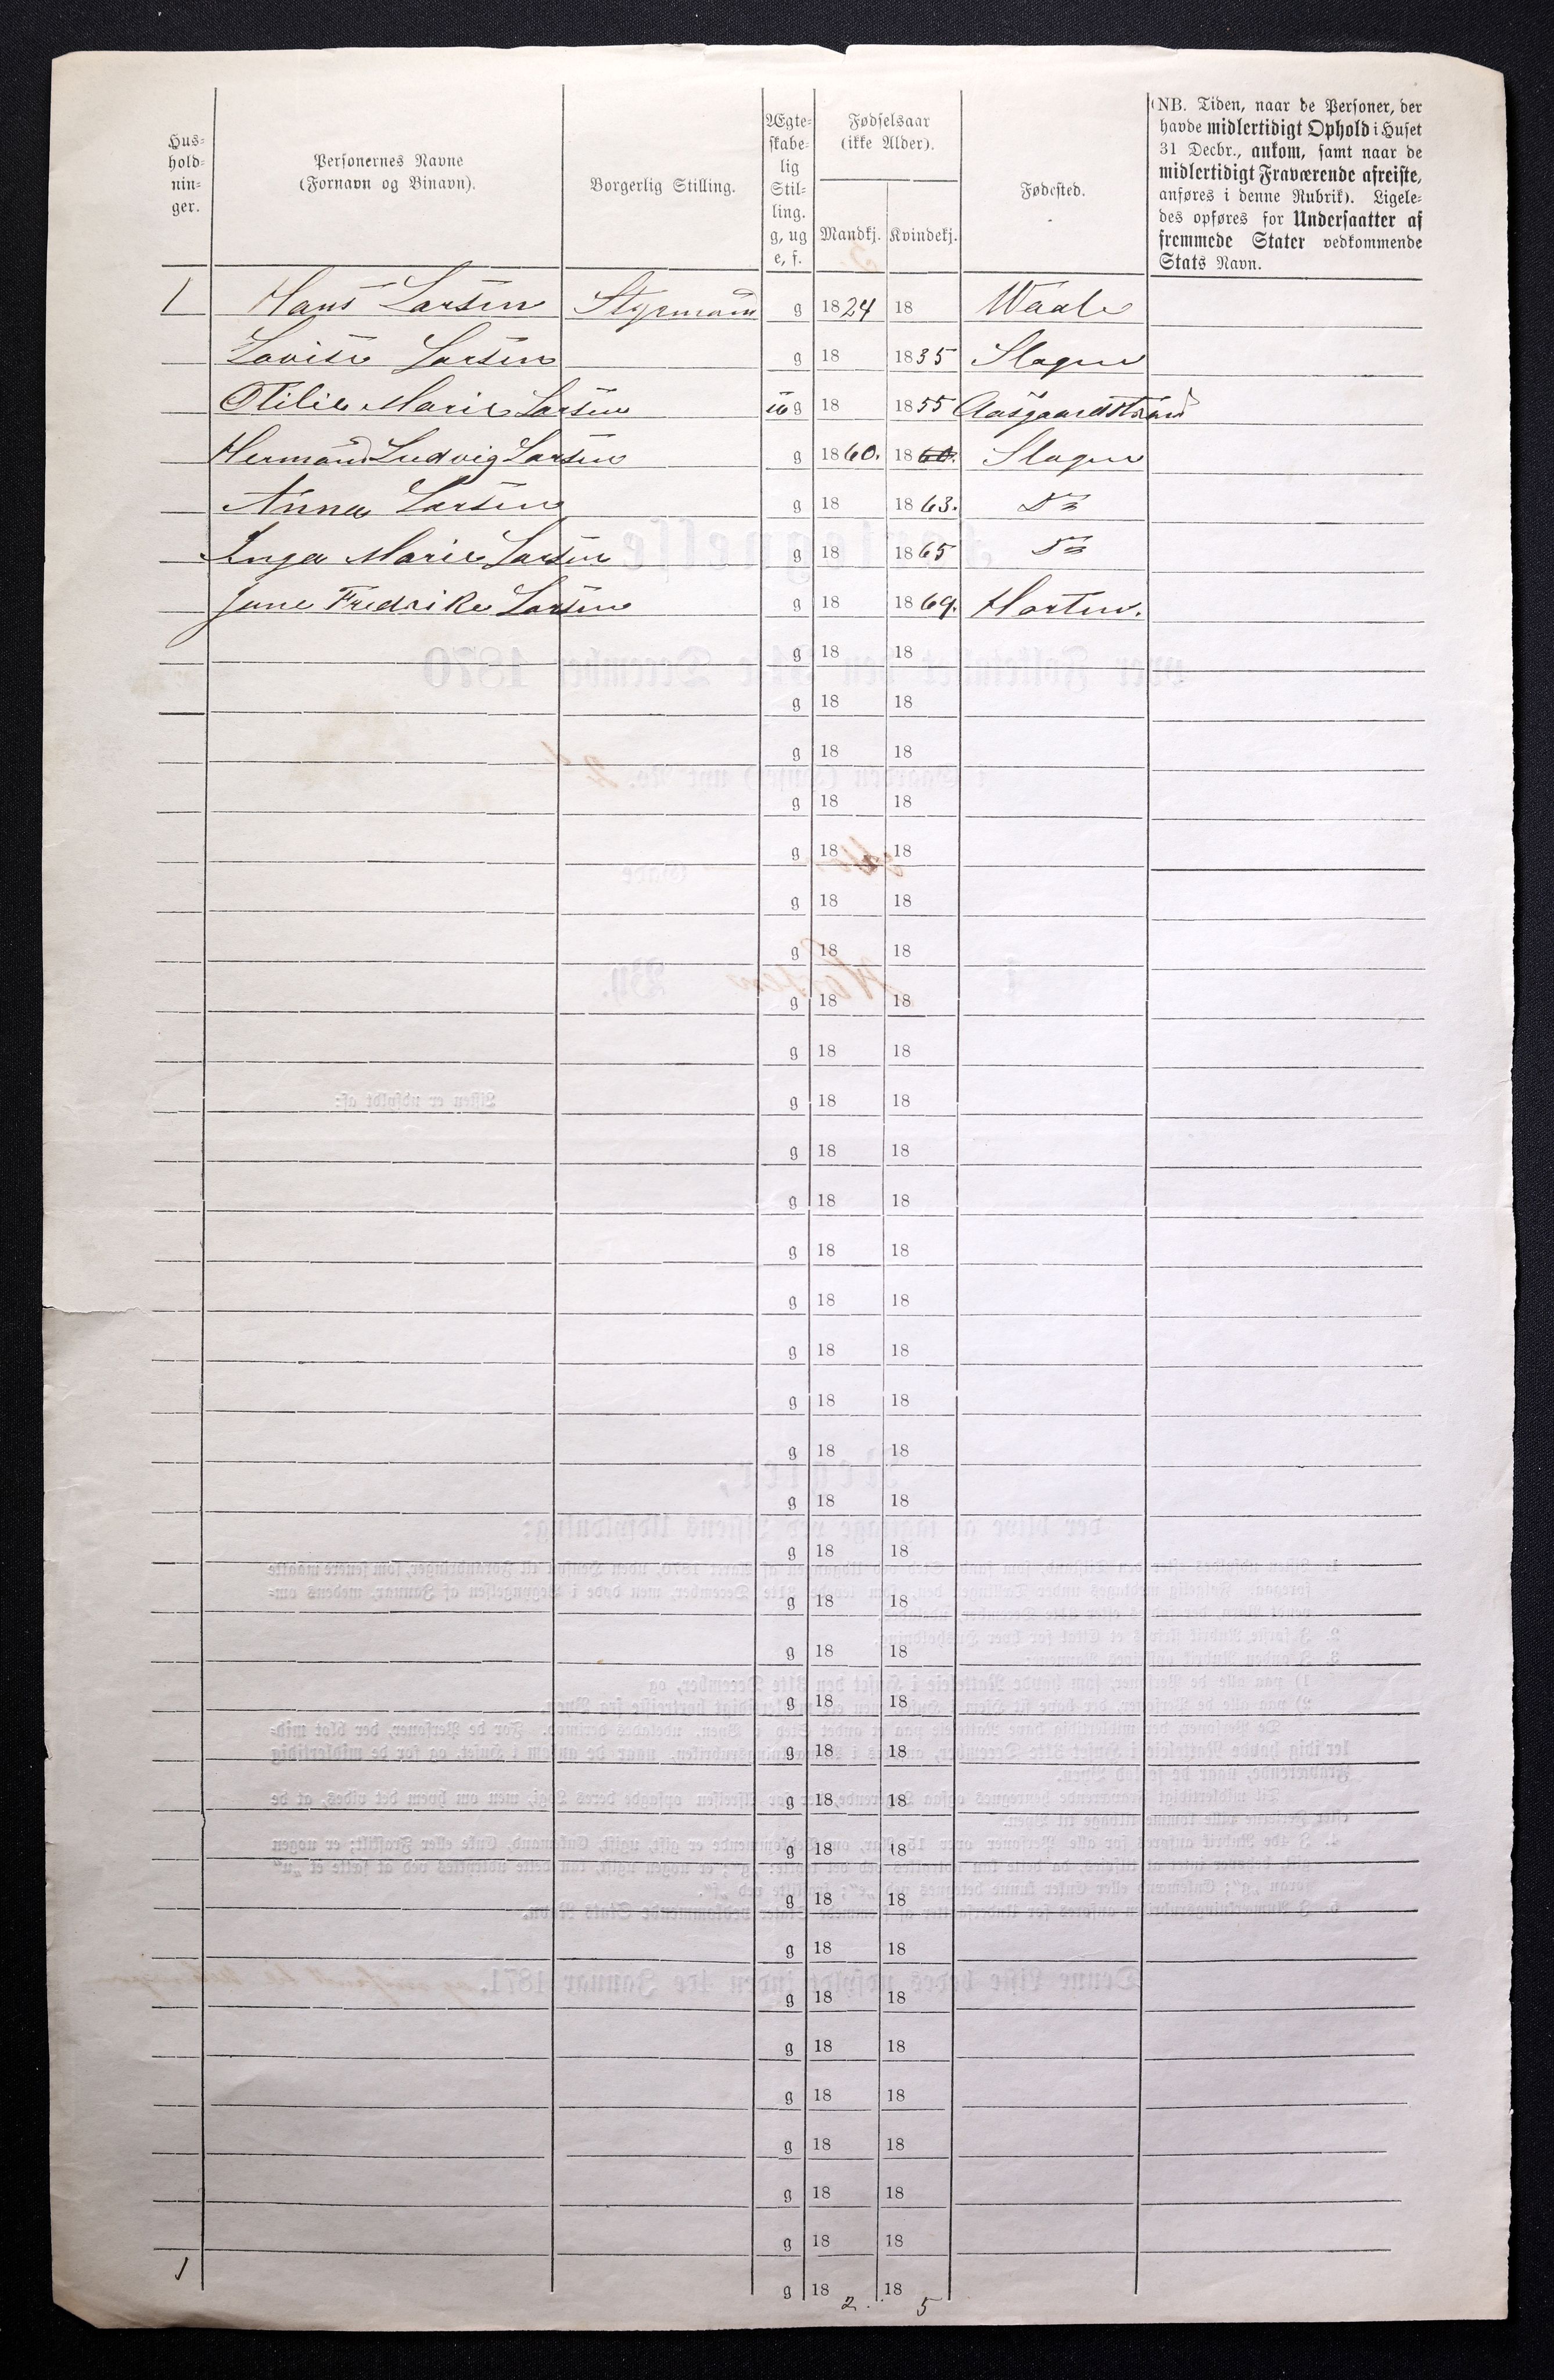 Hus=
hold=
nin=
ger.
Personernes Navne
(Fornavn og Binavn).
Borgerlig Stilling.
Ægte=
skabe=
lig
Stil=
ling.
g, ug
e, f.
Fødselsaar
(ikke Alder).
Mandkj.
Kvindekj.
Fødested.
(NB. Tiden, naar de Personer, der
havde midlertidigt Ophold i Huset
31 Decbr., ankom, samt naar de
midlertidigt Fraværende afreiste,
anføres i denne Rubrik). Ligele=
des opføres for Undersaatter af
fremmede Stater vedkommende
Stats Navn.
1 Hans Larsen Styrmand g 1824 18 Waale
Lovise Larsen g 18 1835 Slagen
Otilie Marie Larsen ug 18 1855 Aasgaardstrand
Hermand Ludvig Larsen g 1860. 1860. Slagen
Anna Larsen g 18 1863. Do
Inga Marie Larsen g 18 1865 Do
Jane Fredrikke Larsen g 18 1869. Horten.
g 18 18
g 18 18
g 18 18
g 18 18
g 18 18
g 18 18
g 18 18
g 18 18
g 18 18
g 18 18
g 18 18
g 18 18
g 18 18
g 18 18
g 18 18
g 18 18
g 18 18
g 18 18
g 18 18
g 18 18
g 18 18
g 18 18
g 18 18
g 18 18
g 18 18
g 18 18
g 18 18
g 18 18
g 18 18
g 18 18
g 18 18
g 18 18
g 18 18
g 18 18
1 g 18 18
2. 5